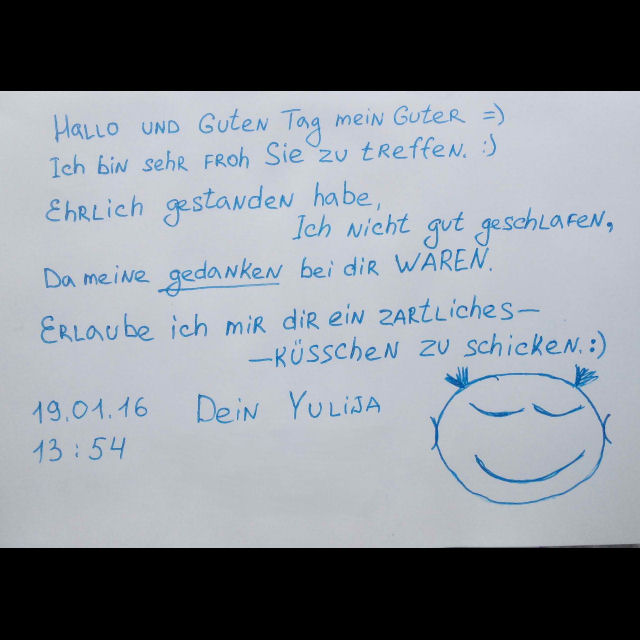 Hallo und Guten Tag mein Guter =)
Ich bin sehr froh Sie zu treffen. :)
Ehrlich gestanden habe,
Ich nicht gut geschlafen,
Da meine gedanken bei dir WAREN.
Erlaube ich mir dir ein zartliches—
—Küsschen zu schicken. :)
19.01.16 Dein Yulija
13:54